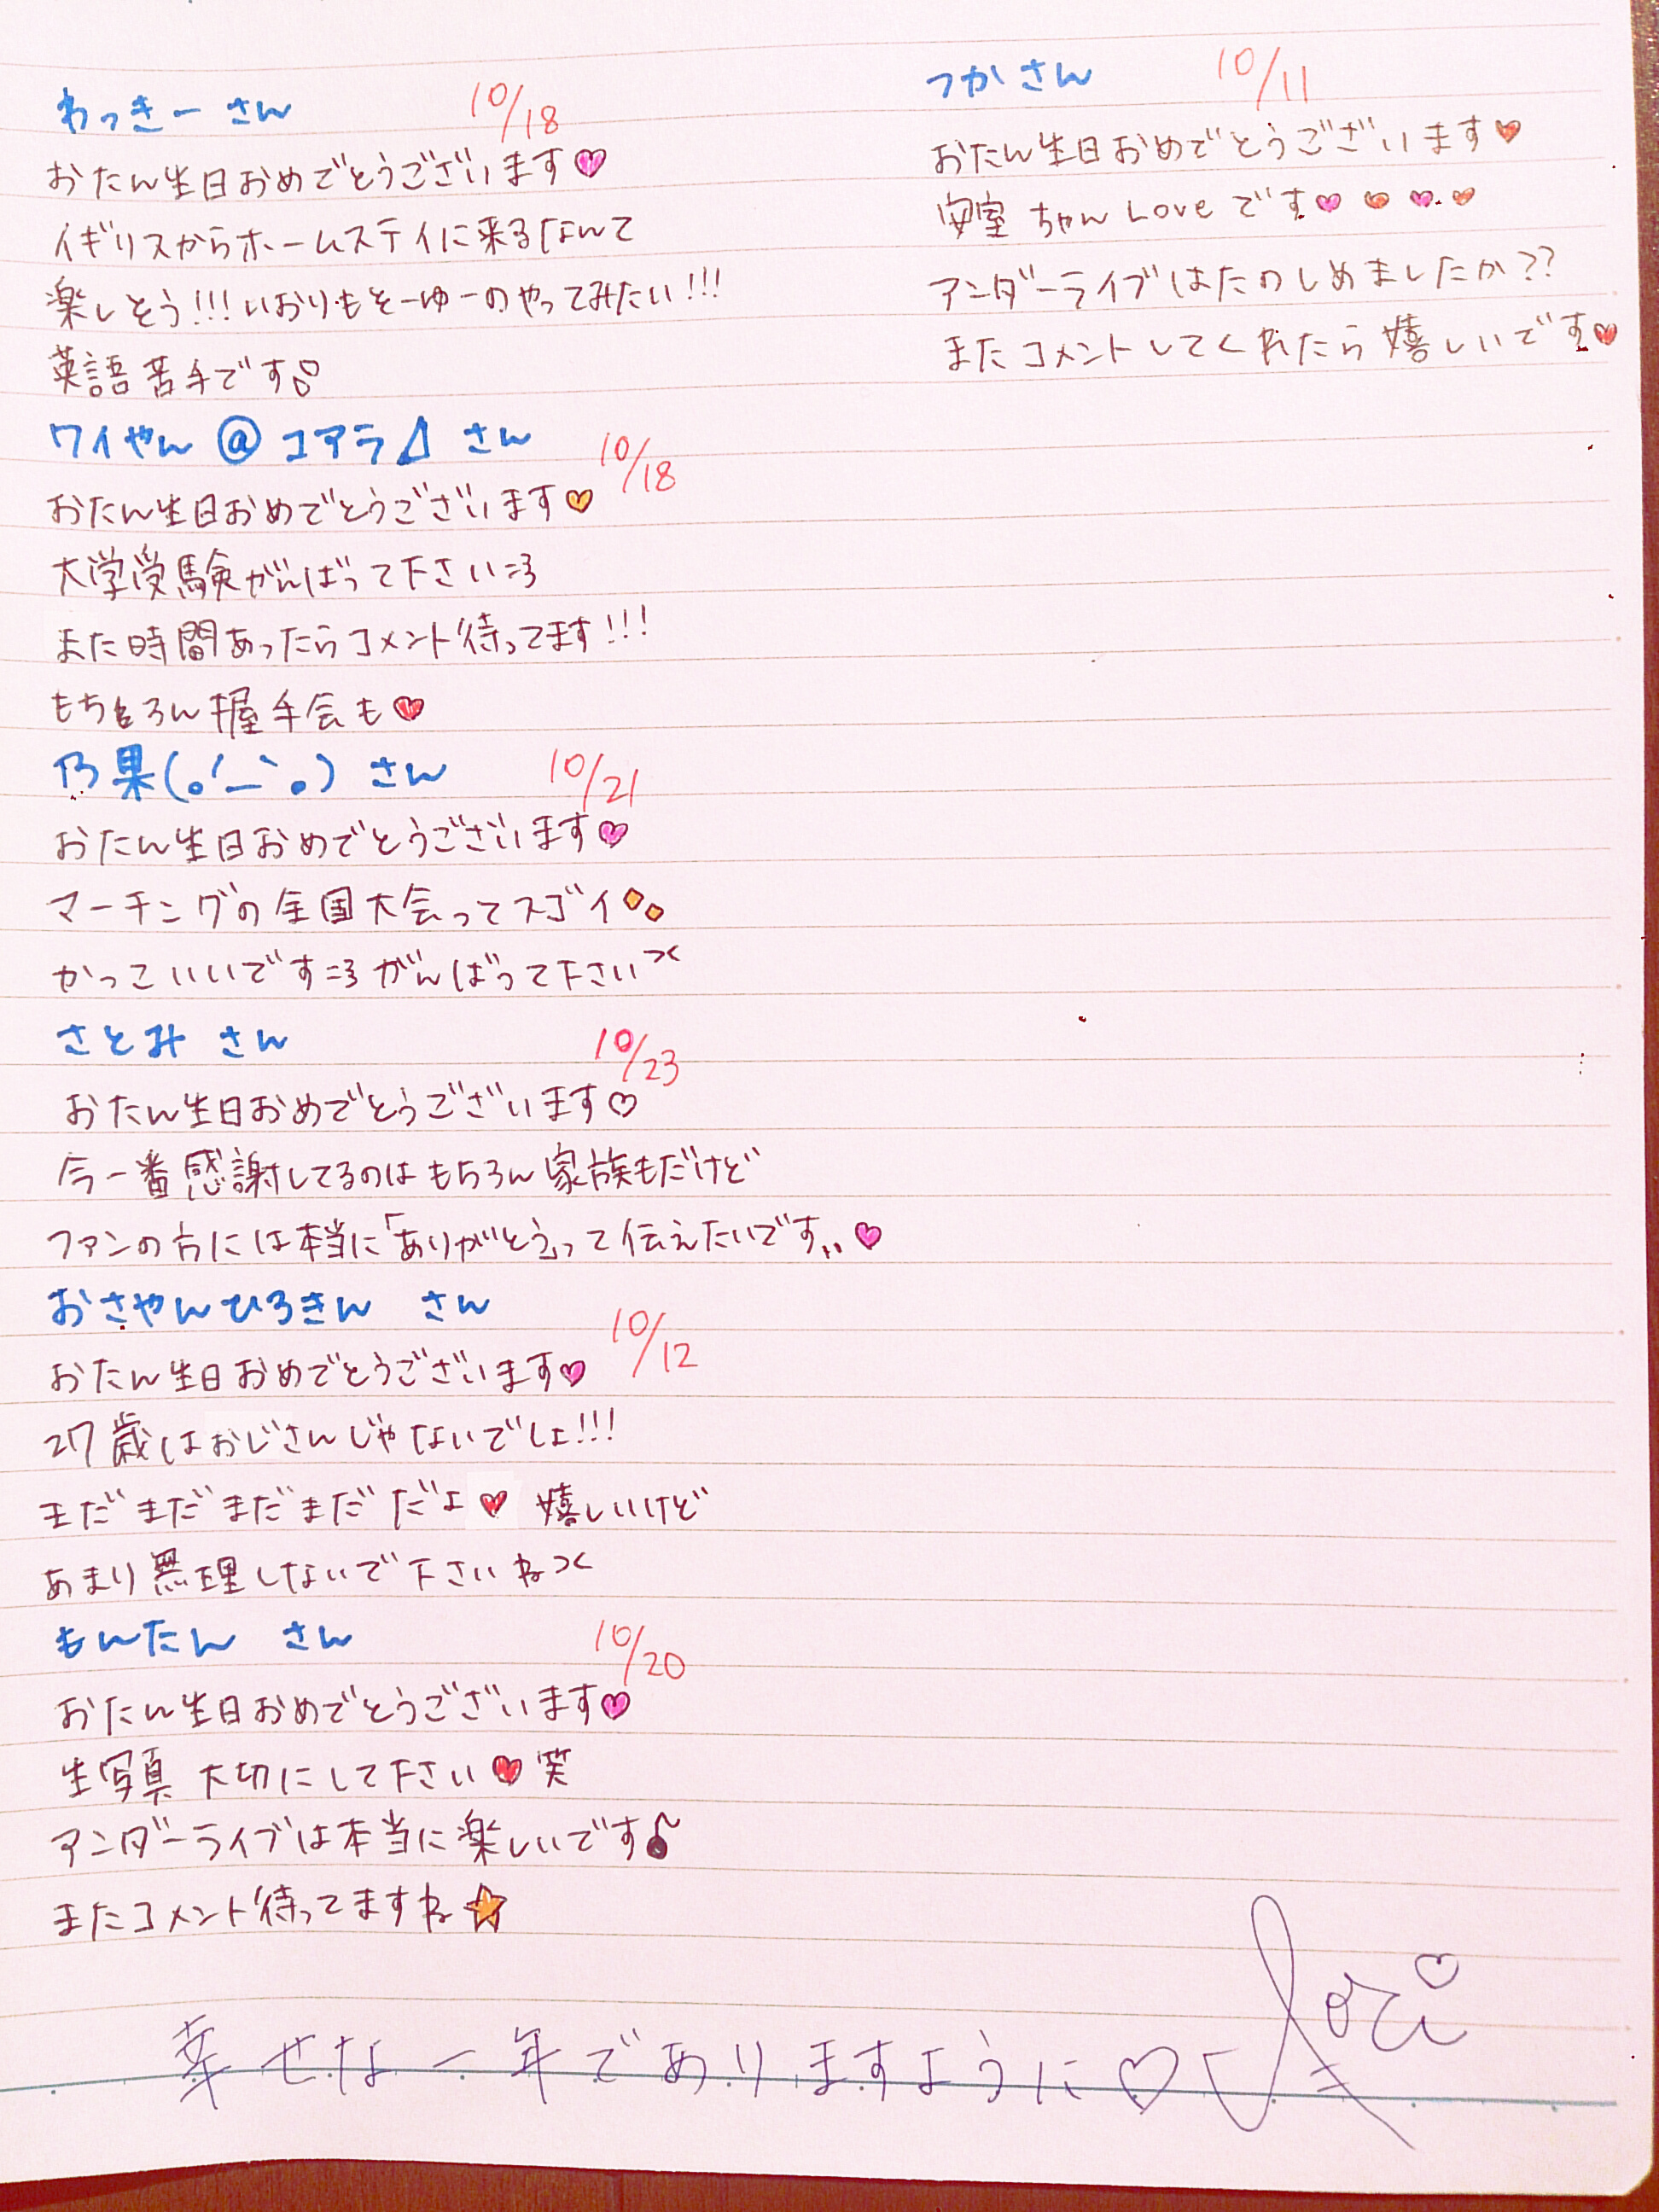 わっきーさん 10/18
おたん生日おめでとうございます♥
イギリスからホームステイに来るなんて
楽しそう!!!いおりもそーゆーのやってみたい!!!
英語苦手です
ワイやん@コアラ⊿ さん 10/18
おたん生日おめでとうございます♥
大学受験がんばって下さい
また時間あったらコメント待ってます!!!
もちろん握手会も♥
乃果(。´_`。) さん 10/21
おたん生日おめでとうございます♥
マーチングの全国大会ってスゴイ
かっこいいです がんばって下さい
さとみ さん 10/23
おたん生日おめでとうございます♡
今一番感謝してるのはもちろん家族もだけど
ファンの方には本当に「ありがとう」って伝えたいです、、♥
おさやんひろきん さん 10/12
おたん生日おめでとうございます♥
27歳はおじさんじゃないでしょ!!!
まだまだまだまだだよ♥ 嬉しいけど
あまり無理しないで下さいね
もんたん さん 10/20
おたん生日おめでとうございます♥
生写真大切にして下さい♥笑
アンダーライブは本当に楽しいです♪
またコメント待ってますね★
つかさん 10/11
おたん生日おめでとうございます♥
安室ちゃんLoveです♥♥♥♥
アンダーライブはたのしめましたか??
またコメントしてくれたら嬉しいです♥
幸せな一年でありますように♡
Iori♡